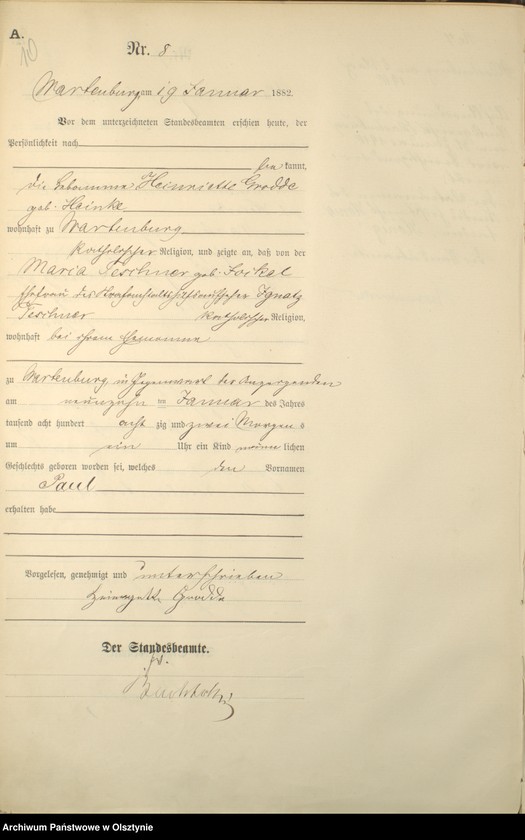 A.
10
Nr. 8
Wartenburg am 19 Januar 1882
Vor dem unterzeichneten Standesbeamten erschien heute, der
Persönlichkeit nach
kannt,
die Hebamme Heinriette Grodde
geb. Heinke
wohnhaft zu Wartenburg
katholischer Religion, und zeigte an, daß von der
Maria Teschner geb.
Ehefrau des Ignatz
Teschner katholischer Religion,
wohnhaft bei ihrem Ehemanne
zu Wartenburg in Gegenwart der Anzeigenden
am neunzehn ten Januar des Jahres
tausend acht hundert acht zig und zwei Morgens
um ein Uhr ein Kind männlichen
Geschlechts geboren worden sei, welches den Vornamen
Paul
erhalten habe
Vorgelesen, genehmigt und unterschrieben
Grodde
Der Standesbeamte.
Archiwum Państwowe w Olsztynie